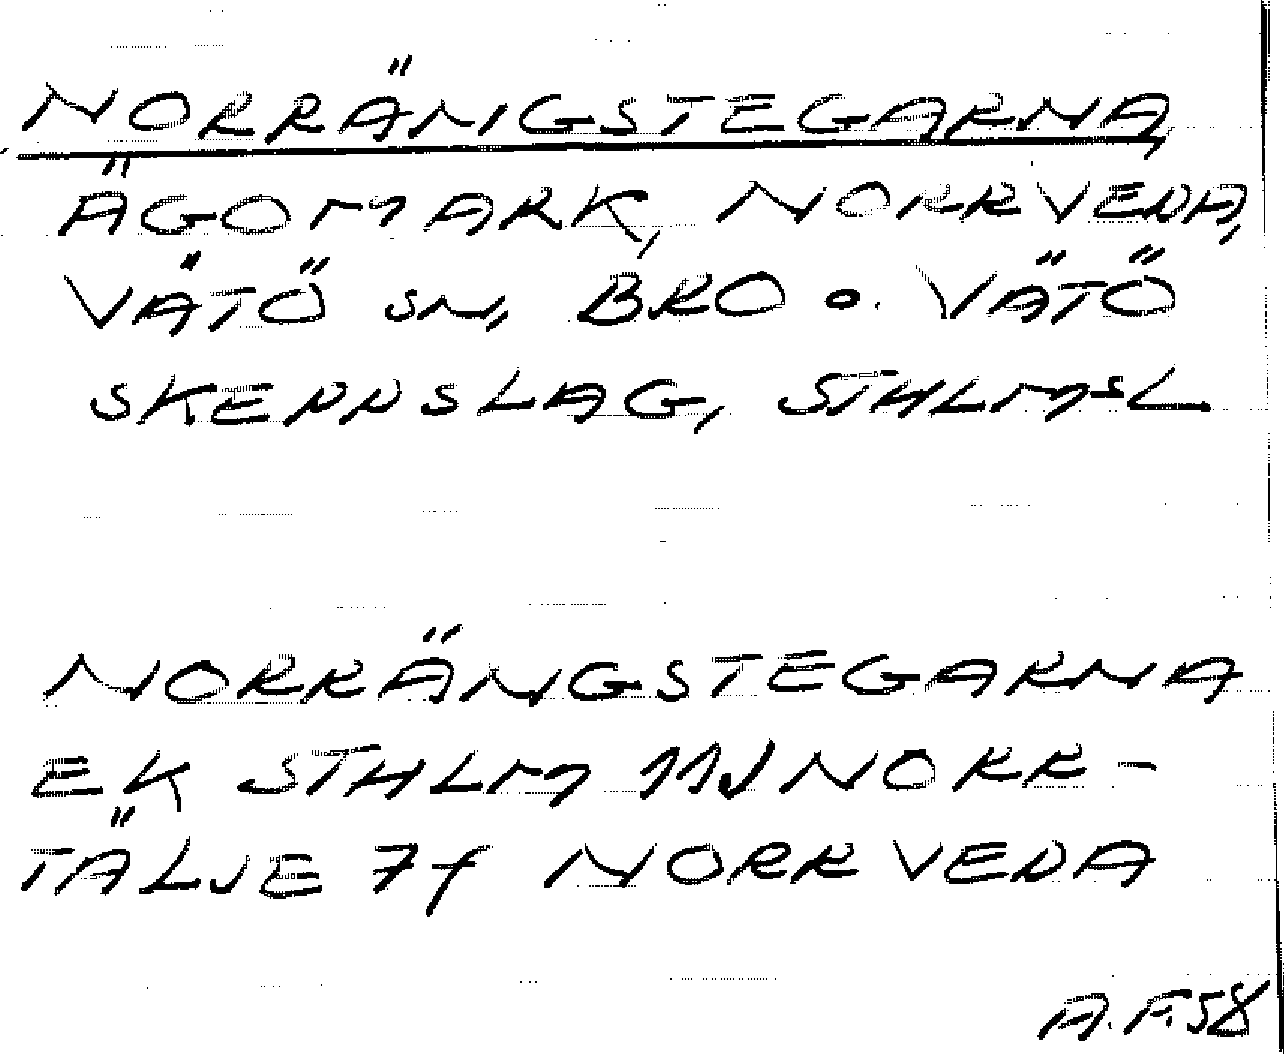 NORRÄNGSTEGARNA,
ÄGOMARK, NORRVEDA,
VÄTÖ SN, BRO O. VÄTÖ
SKEPPSLAG, STHLMSL
NORRÄNGSTEGARNA
EK STHLM 11J NORR-
TÄLJE 7f NORRVEDA
A.F.58